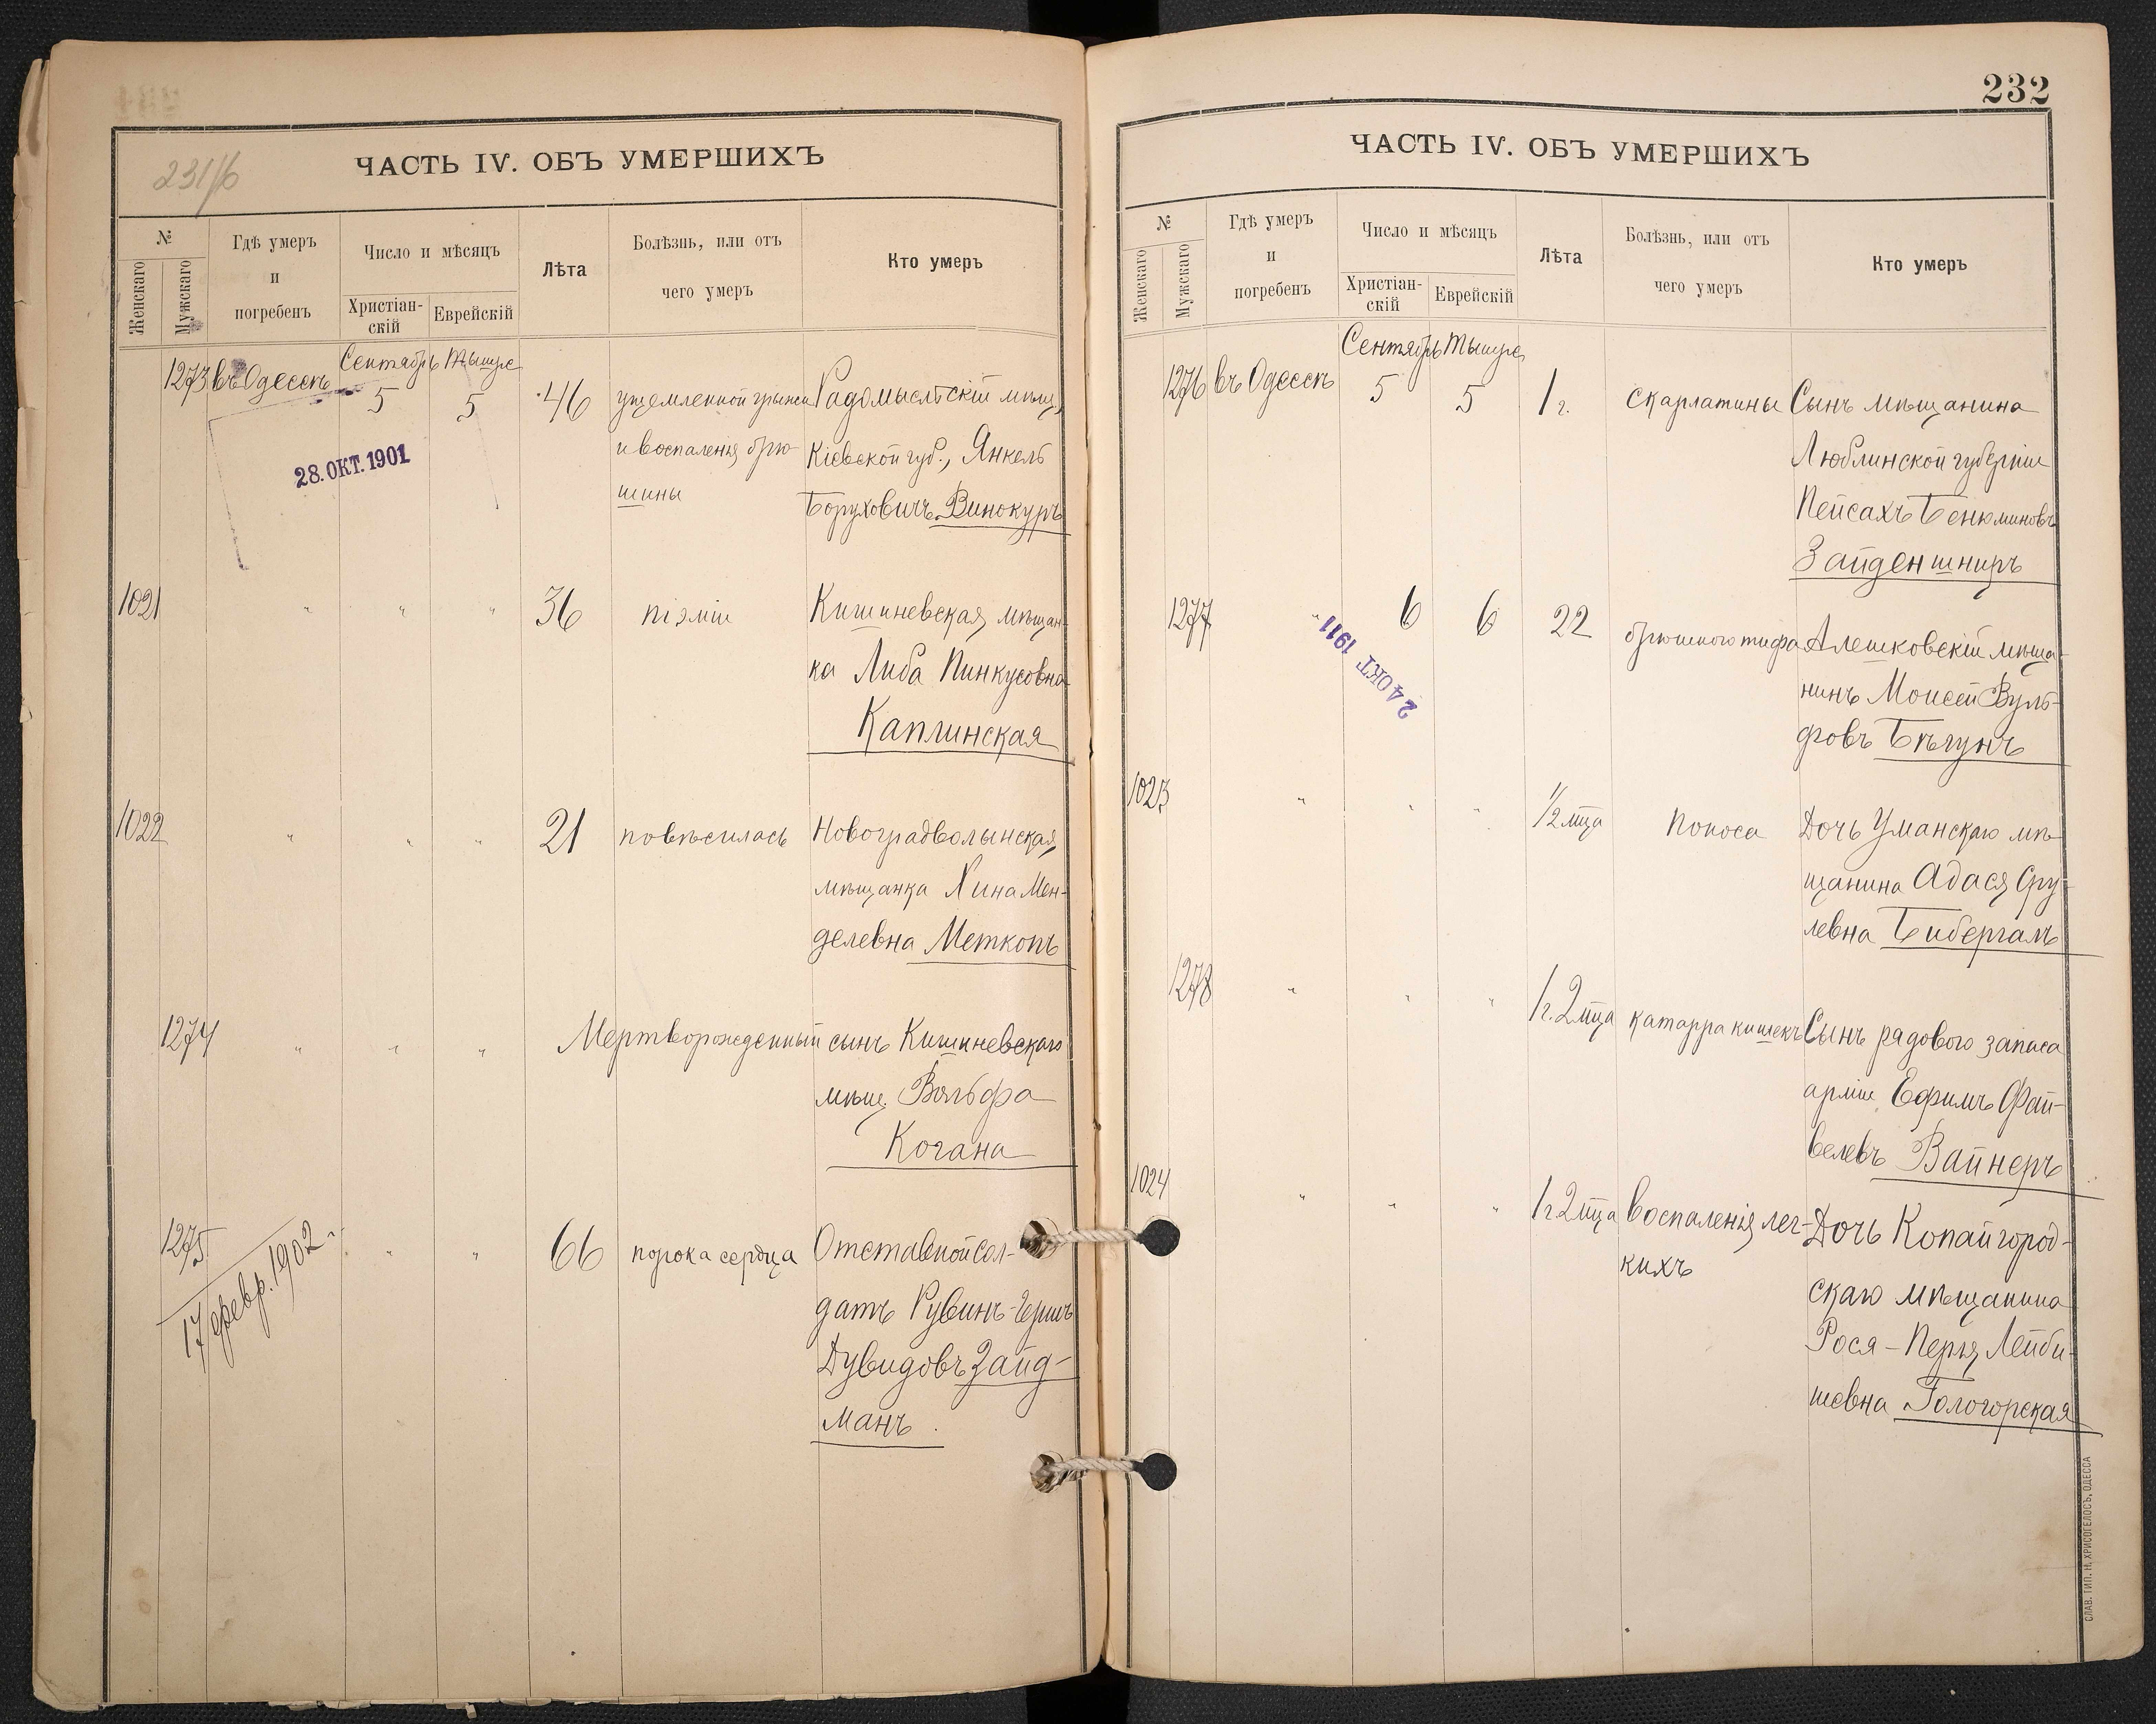 231/б
ЧАСТЬ IV. ОБЪ УМЕРШИХЪ
№
Женскаго
Мужскаго
Гдѣ умеръ
и
погребенъ
Число и мѣсяцъ
Христіан-
скій
Еврейскій
Лѣта
Болѣзнь, или отъ
чего умеръ
Кто умеръ
Сентябрь Тышре
1273 въ Одессѣ 5 5 46 ущемленной грыжи Радомысльскій мѣщ.
и воспаленія брю- Кіевской губ., Янкель
шины Боруховичъ Винокуръ
28.ОКТ.1901
1021 " " " 36 піэміи Кишиневская мѣщан-
ка Либа Пинкусовна
Каплинская
1022 " " " 21 повѣсилась Новоградволынская
мѣщанка Хина Мен-
делевна Меткопъ
1274 " " " Мертворожденный сынъ Кишиневскаго
мѣщ. Вольфа
Когана
1275 " " " 66 порока сердца Отставной сол-
датъ Рувинъ-Гершъ
Дувидовъ Зайд-
манъ.
17 февр. 1902
232
ЧАСТЬ IV. ОБЪ УМЕРШИХЪ
№
Женскаго
Мужскаго
Гдѣ умеръ
и
погребенъ
Число и мѣсяцъ
Христіан-
скій
Еврейскій
Лѣта
Болѣзнь, или отъ
чего умеръ
Кто умеръ
Сентябрь Тышре
1276 въ Одессѣ 5 5 1 г. скарлатины Сынъ мѣщанина
Люблинской губерніи
Пейсахъ Бенюминовъ
Зайденшниръ
1277 " 6 6 22 брюшного тифа Алешковскій мѣща-
нинъ Моисей Вуль-
фовъ Бѣгунъ
24 ОКТ 1911
1023 " " " 1/2 мца поноса Дочь Уманскаго мѣ-
щанина Адася Сру-
левна Бибергалъ
1278 " " " 1 г. 2 мца катарра кишекъ Сынъ рядового запаса
арміи Ефимъ Фай-
велевъ Вайнеръ
1024 " " " 1 г 2 мца воспаленія лег- Дочь Копайгород-
кихъ
скаго мѣщанина
Рося-Перля Лейби-
шевна Гологорская
СЛАВ. ТИП. Н. ХРИСОГЕЛОСЪ, ОДЕССА